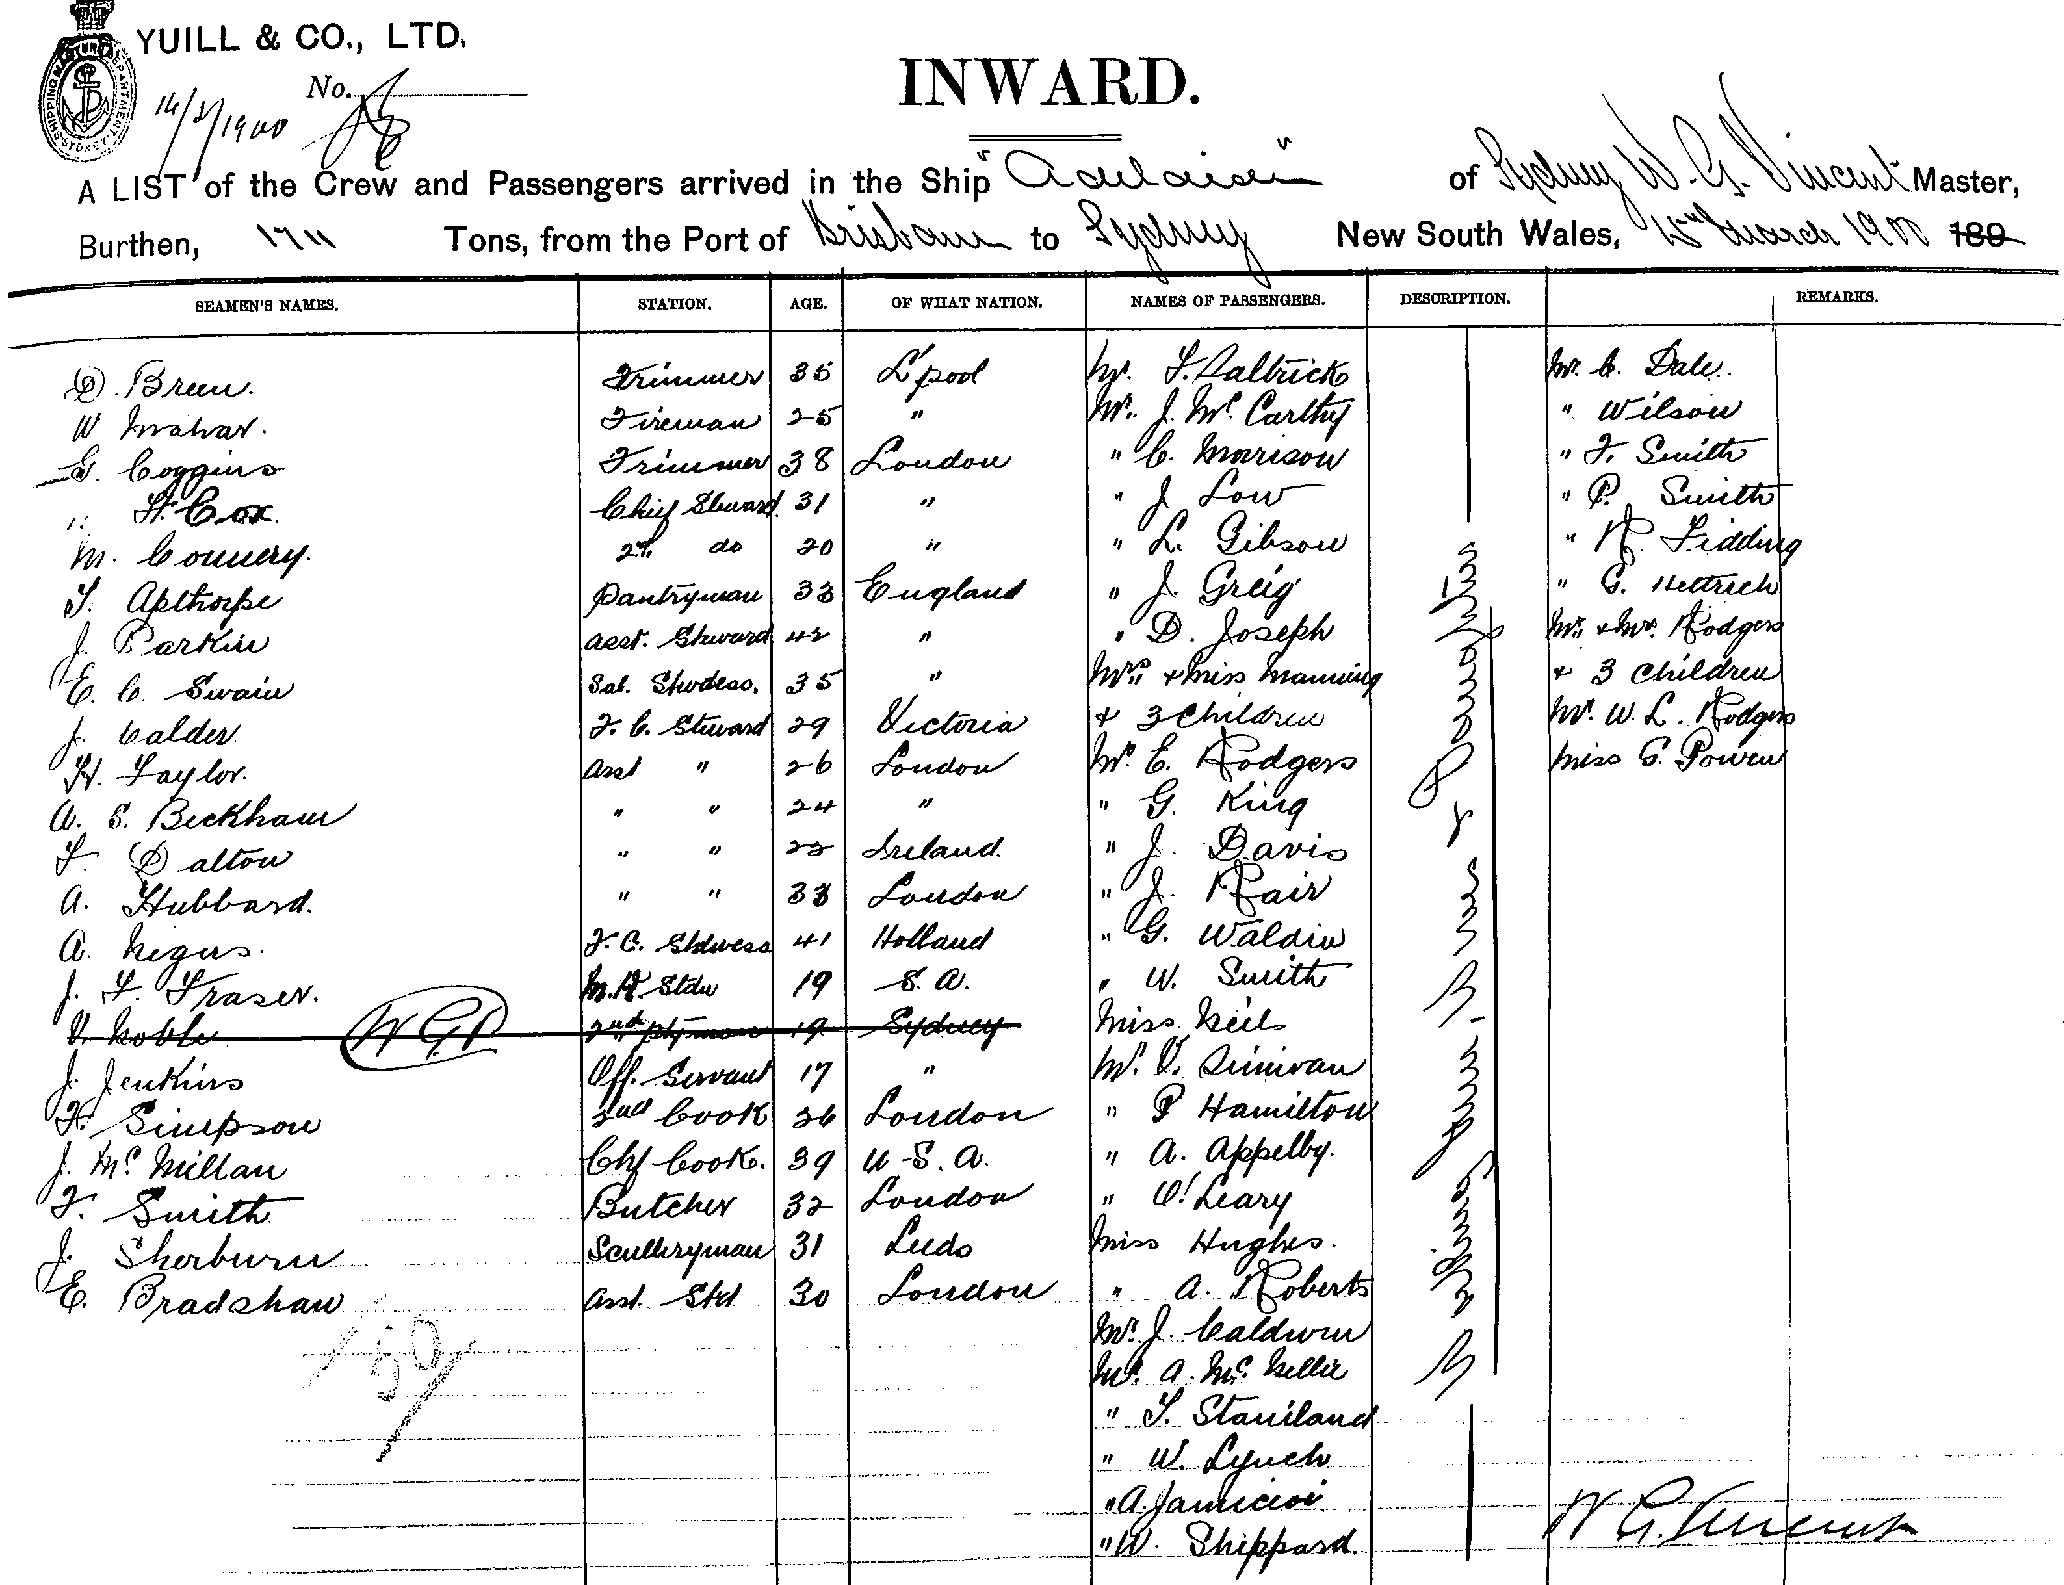 YUILL & CO., LTD.
No.
1900
INWARD.
A LIST of the Crew and Passengers arrived in the Ship "Adelaide" of Sydney W. G. Vincent Master,
Burthen, 1711 Tons, from the Port of Brisbane to Sydney New South Wales, March 1900 189
SEAMEN'S NAMES. STATION. AGE. OF WHAT NATION. NAMES OF PASSENGERS. DESCRIPTION. REMARKS.
D. Breen. Trimmer 35 L'pool Mr. Mr. C. Dale.
W Mahar. Fireman 25 " Mr. J. McCarthy " Wilson
G. Coggins Trimmer 38 London " C. Morrison " F. Smith
H. Cox. Chief Steward 31 " " J. Low " P. Smith
M. Connery. 2nd do 20 " " L. Gibson " R. Fidding
T. Apthorpe Pantryman 33 England " J. Greig " G. Hettrich
J. Parkin Asst. Steward 42 " " D. Joseph Mrs. & Mr. Rodgers
E. C. Swain Sal. Stwdess. 35 " Mrs. & Miss Manning & 3 Children
J. Calder F. C. Steward 29 Victoria & 3 Children Mr. W. L. Rodgers
H. Taylor. Asst " 26 London Mr. E. Rodgers Miss G. Power
A. S. Beckham " " 24 " " G. King
F. Dalton " " 22 Ireland. " J. Davis
A. Hubbard. " " 33 London " J. Rair
A. Negus. F. C. Stdwess 41 Holland " G. Waldin
J. F. Fraser. M. R. Stdw 19 S. A. " W. Smith
V. Noble 2nd ptyman 19 Sydney Miss Neil
J. Jenkins Off. Servant 17 " Mr. V.
F. Simpson 2nd Cook 26 London " P Hamilton
J. McMillan Chf Cook. 39 U.S.A. " A. Appelby.
F. Smith Butcher 32 London " O'Leary
J. Sherburn Sculleryman 31 Leeds Miss Hughes.
E. Bradshaw Asst. Std 30 London " A. Roberts
Mr. J. Caldwell
Mr. A. Mc
" T. Staniland
" W. Lynch
" A.
" W. Shippard.
W G. Vincent